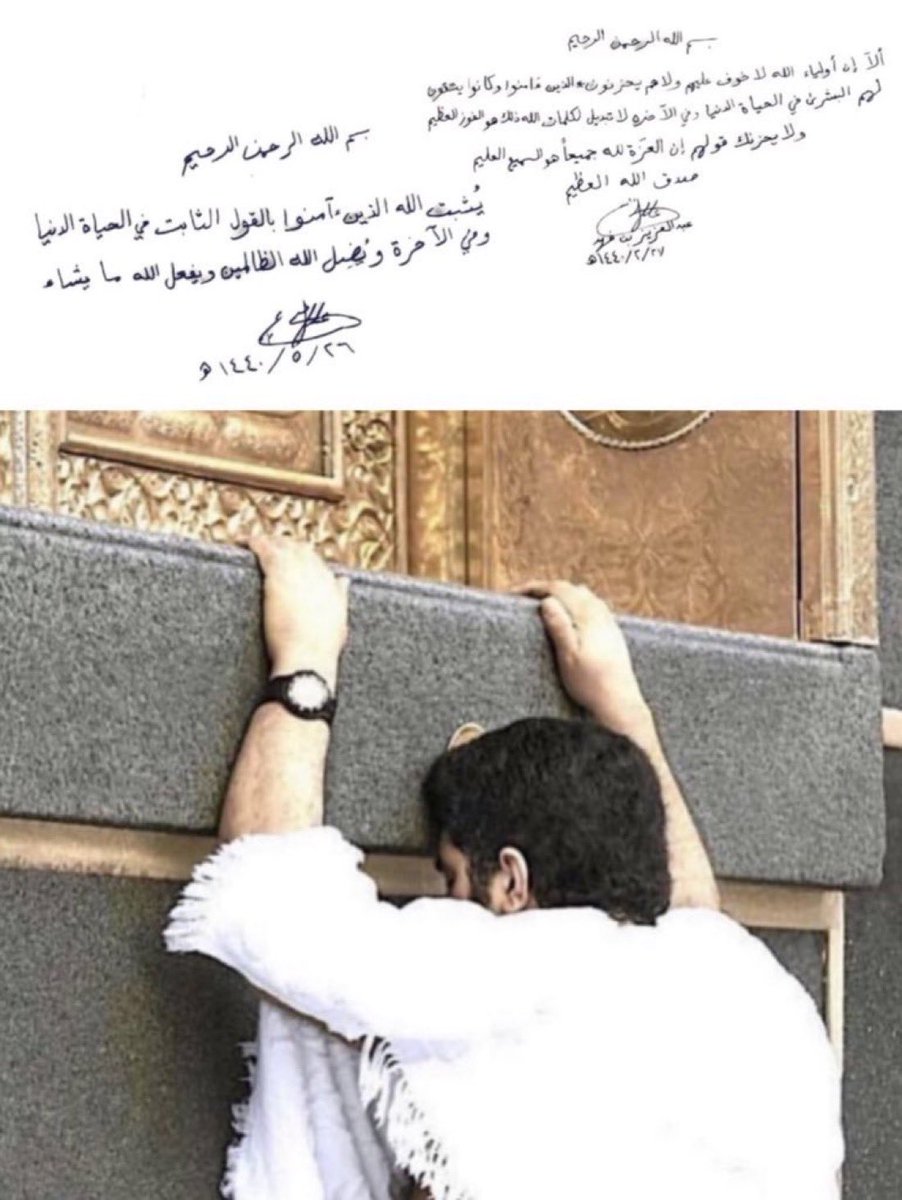 بسم الله الرحمن الرحيم
ألآ إن أولياء الله لا خوف عليهم ولا هم يحزنون • الذين ءامنوا وكانوا يتقون
لهم البشرى في الحياة الدنيا وفي الآخرة لا تبديل لكلمات الله ذلك هو الفوز العظيم
ولا يحزنك قولهم إن العزة لله جميعاً هو السميع العليم
صدق الله العظيم
عبدالعزيز بن فهد
١٤٤٠/٢/٢٧هـ
بسم الله الرحمن الرحيم
يُثبت الله الذين ءآمنوا بالقول الثابت في الحياة الدنيا
وفي الآخرة ويُضِل الله الظالمين ويفعل الله ما يشاء
١٤٤٠/٥/٢٦ هـ